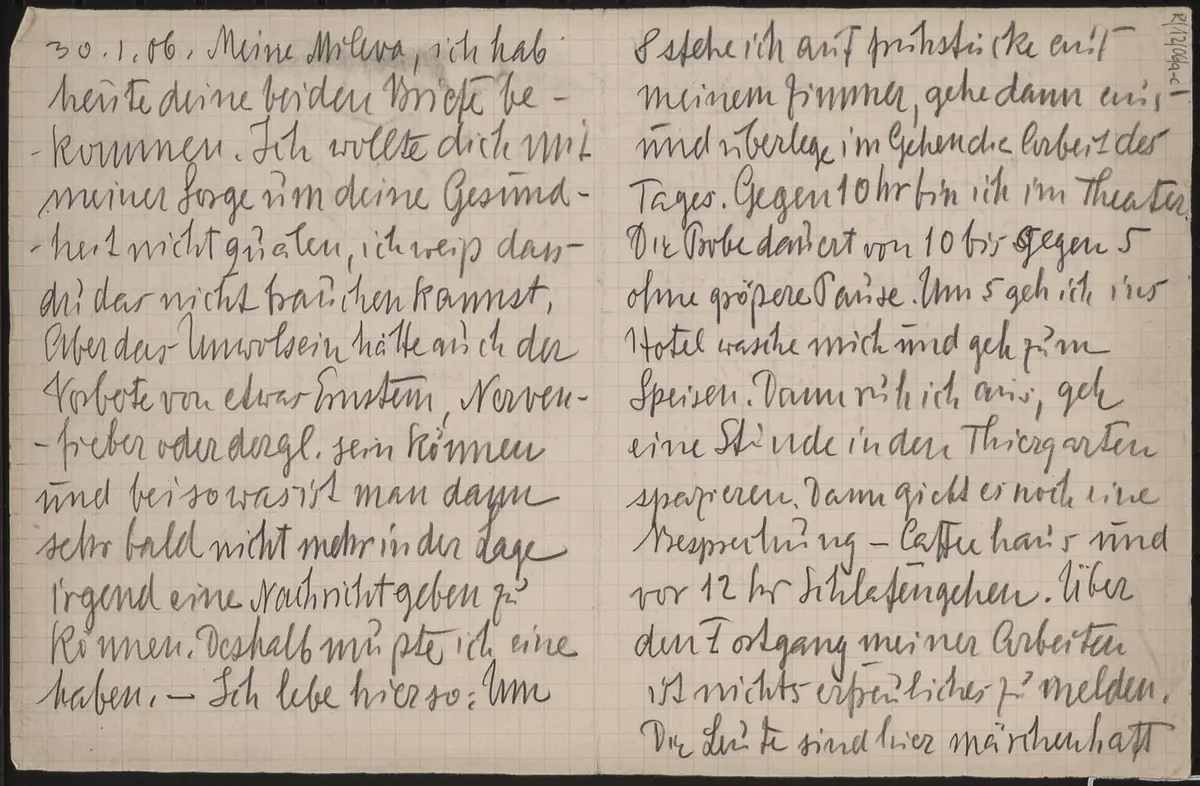 30.1.06. Meine Mileva, ich hab
heute deine beiden Briefe be-
-kommen. Ich wollte dich mit
meiner Sorge um deine Gesund-
-heit nicht quälen, ich weiß dass
du das nicht brauchen kannst.
Aber das Unwolsein hätte auch der
Vorbote von etwas Ernstem, Nerven-
-fieber oder dergl. sein können
und bei so was ist man dann
sehr bald nicht mehr in der Lage
irgend eine Nachricht geben zu
können. Deshalb mußte ich eine
haben. – Ich lebe hier so: Um
8 stehe ich auf frühstücke auf
meinem Zimmer, gehe dann aus,
und überlege im Gehen die Arbeit des
Tages. Gegen 10 hr bin ich im Theater.
Die Probe dauert von 10 bis gegen 5
ohne größere Pause. Um 5 geh ich ins
Hotel wasche mich und geh zum
Speisen. Dann ruh ich aus, geh
eine Stunde in den Thiergarten
spazieren. Dann giebt es noch eine
Besprechung – Caffeehaus und
vor 12 hr Schlafengehen. Über
den Fortgang meiner Arbeiten
ist nichts erfreuliches zu melden.
Die Leute sind hier märchenhaft